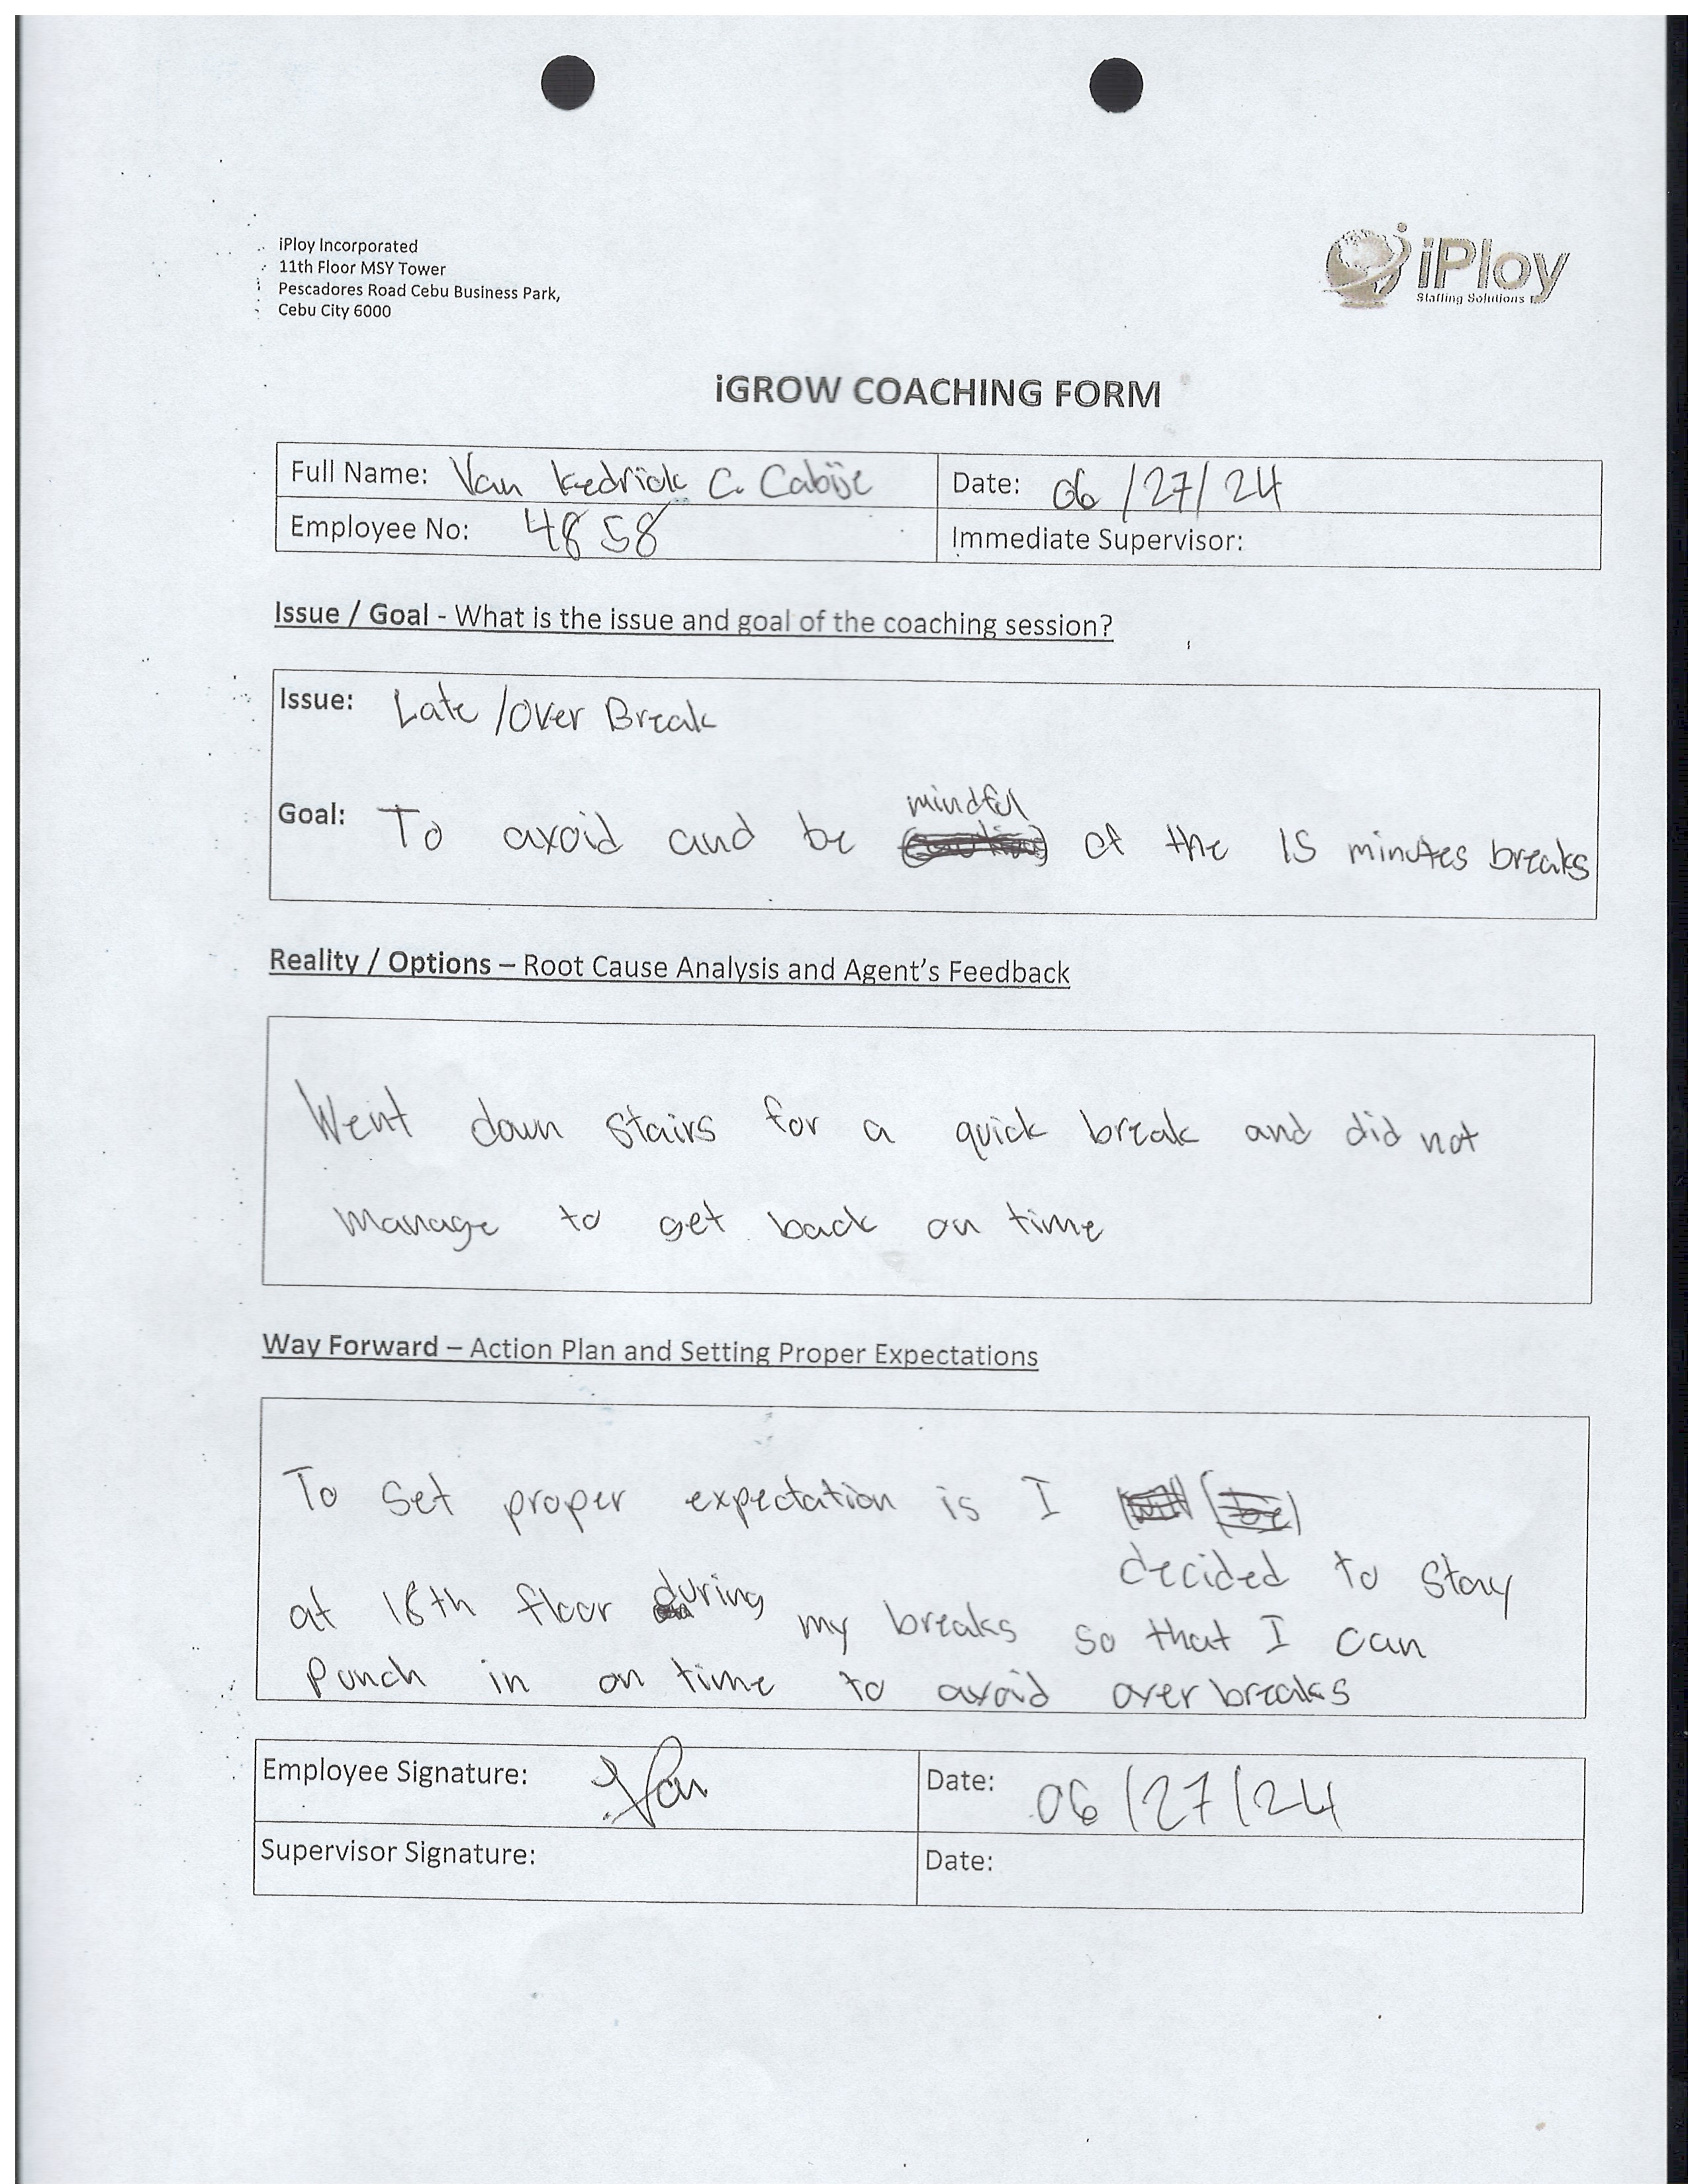 iPloy Incorporated
11th Floor MSY Tower
Pescadores Road Cebu Business Park,
Cebu City 6000
iPloy
Staffing Solutions
iGROW COACHING FORM
Full Name: Van Kedrick C. Cabije
Date: 06/27/24
Employee No: 4858
Immediate Supervisor:
Issue / Goal - What is the issue and goal of the coaching session?
Issue: Late /Over Break
mindful
Goal: To avoid and be of the 15 minutes breaks
Reality / Options – Root Cause Analysis and Agent's Feedback
Went down stairs for a quick break and did not
manage to get back on time
Way Forward – Action Plan and Setting Proper Expectations
To set proper expectation is I
decided to stay
at 18th floor during my breaks so that I can
Punch in on time to avoid over breaks
Employee Signature: Van
Date: 06/27/24
Supervisor Signature:
Date: